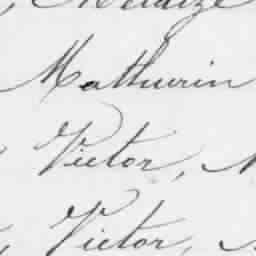 Mathurin
Victor,
Victor,